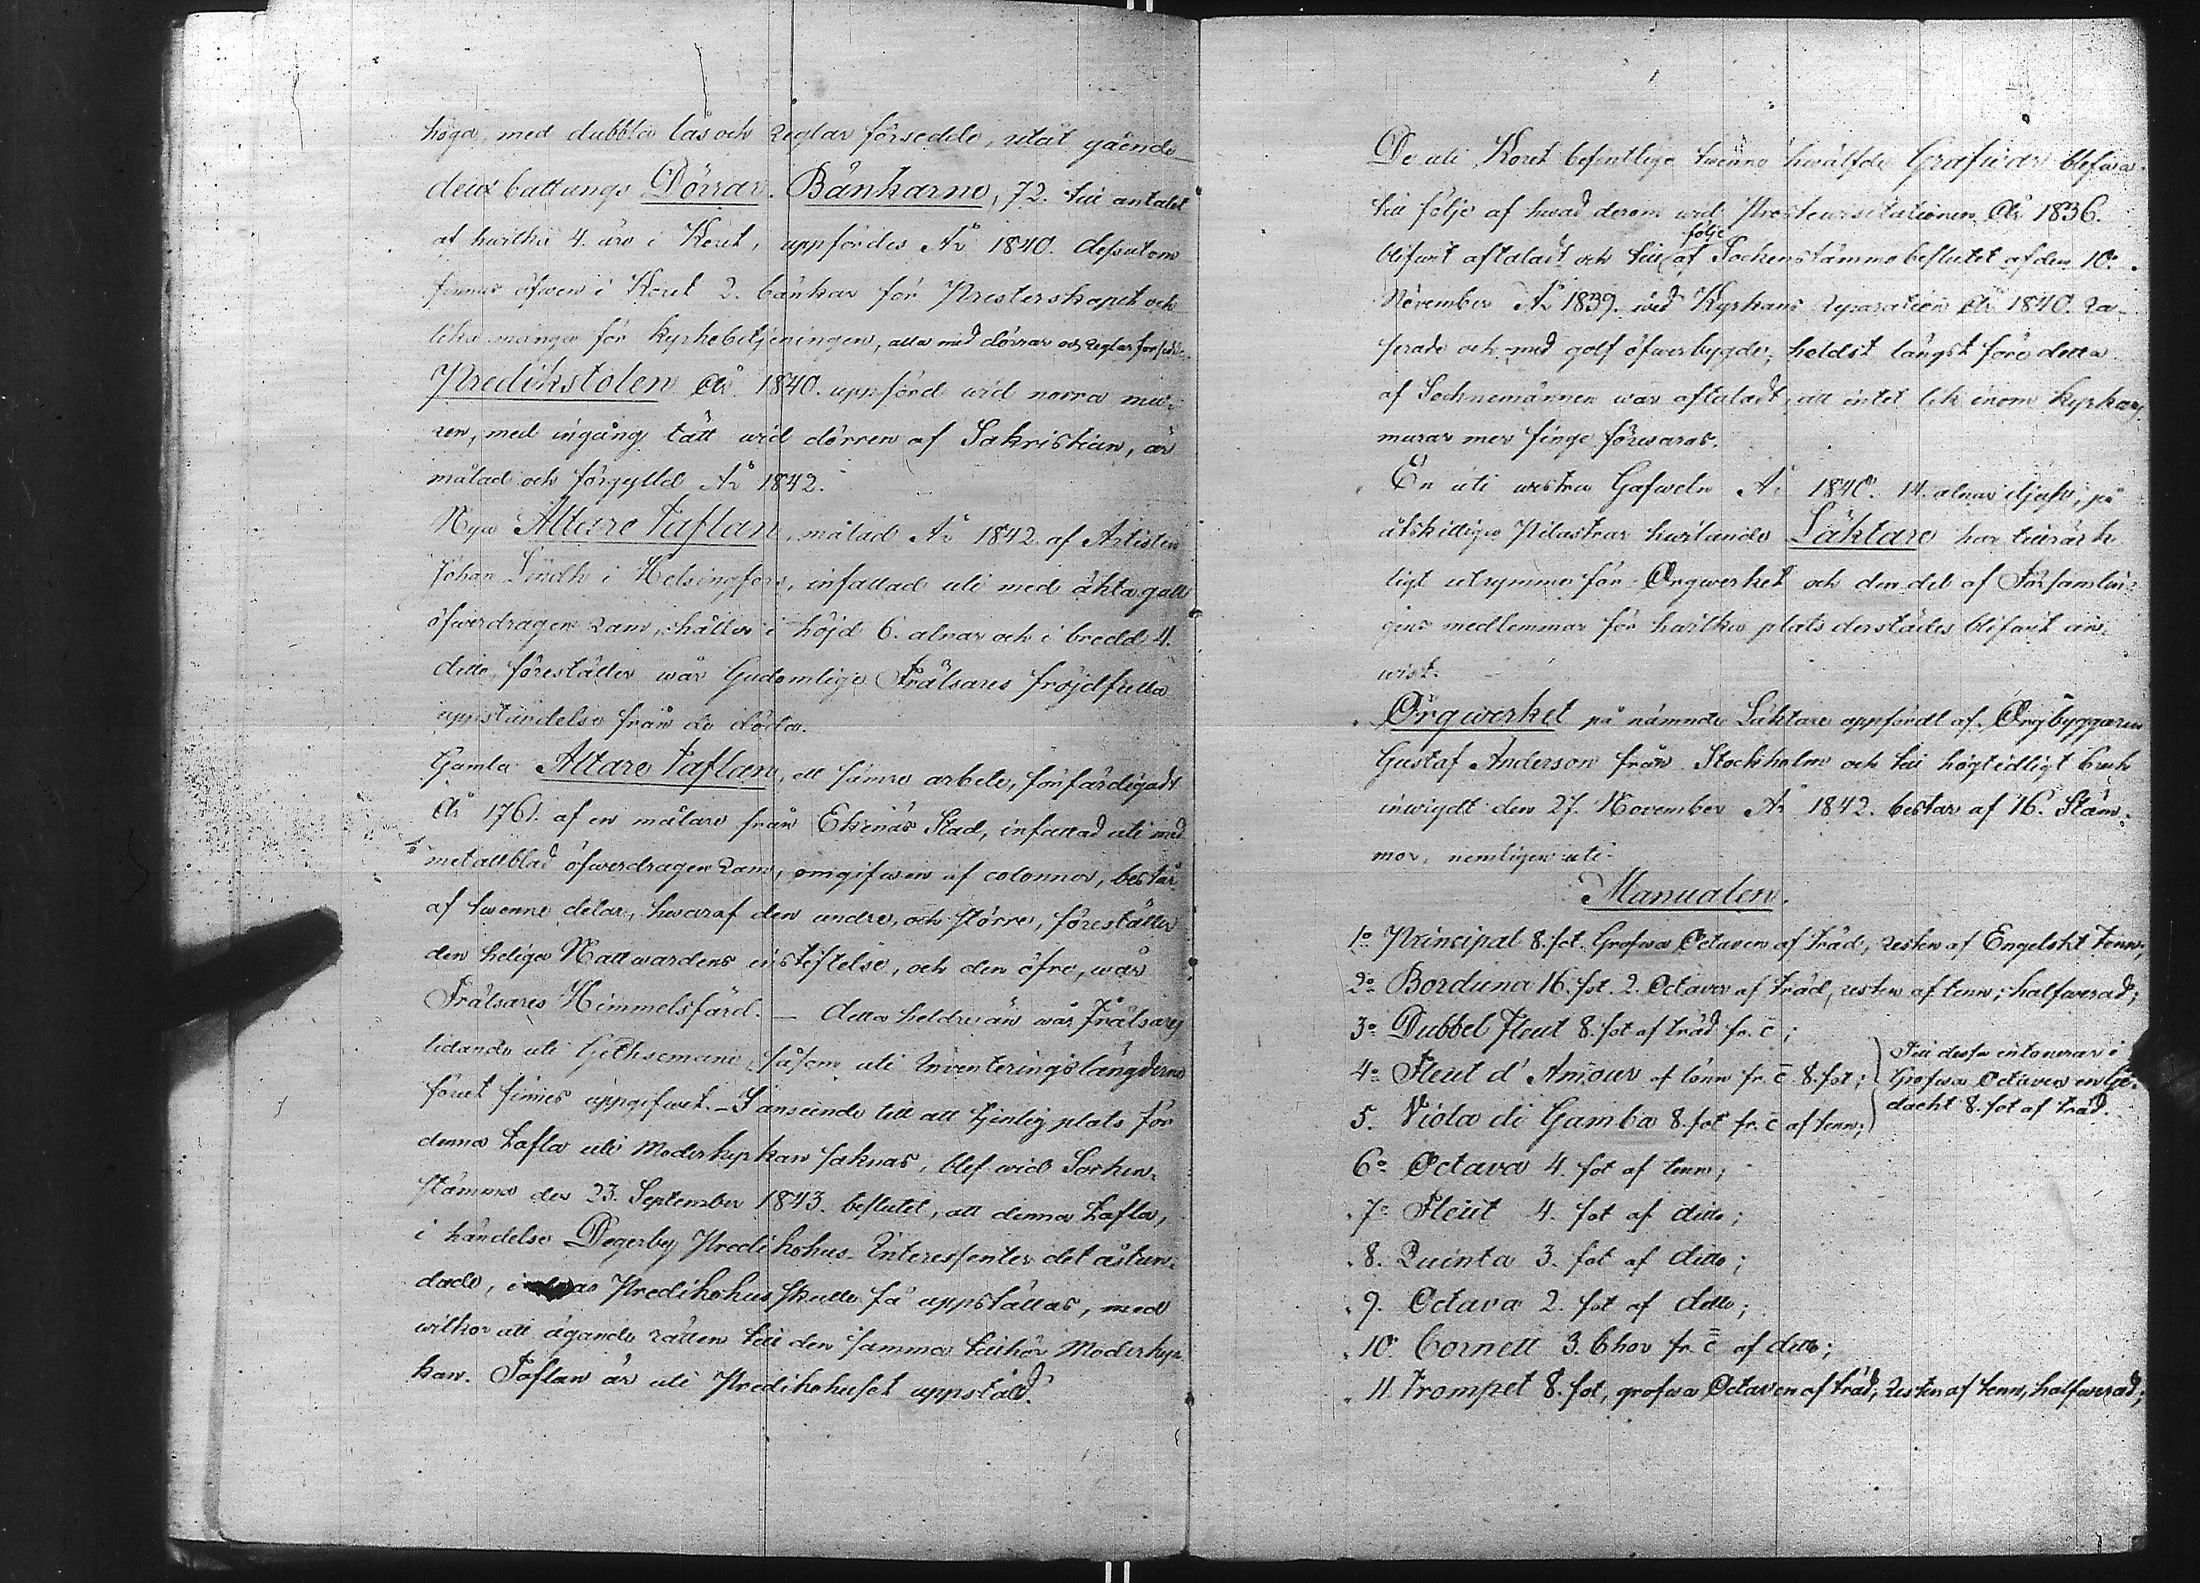 höga, med dubbla lås och Reglar försedde, utåt gående
deux battungs Dörrar. Bänkarne, 72. till antalet
af hvilka 4. äro i Koret, uppfördes År 1840. dessutom
finnas öfwen i Koret 2. bänkar för Presterskapet och
lika många för kyrkobetjeningen, alla med dörrar och reglar försedde.
Predikstolen År 1840. uppförd wid norra mu-
ren, med ingång tätt wid dörren af Sakristian, är
målad och förgylld År 1842.
Nya Altare Taflan, målad År 1842 af Artisten
Johan Lindh i Helsingfors, infattad uti med äkta guld
öfwerdragen Ram, håller i höjd 6. alnar och i bredd 4.
ditto, föreställer wår Gudomlige Frälsares fröjdfulla
uppståndelse från de döda.
Gamla Altare Taflan, ett sämre arbete, förfärdigadt
År 1761. af en målare från Ekenäs Stad, infattad uti med
metallblad öfwerdragen Ram, omgifwen af colonner, består
af twenne delar, hwaraf den undre, och större, föreställer
den heliga Nattwardens instiftelse, och den öfre, wår
Frälsares Himmelsfärd. — detta heldre än wår Frälsares
lidande uti Gethsemane, såsom uti Inventeringslängderne
förut finnes uppgifwet. – I anseende till att tjenlig plats för
denna Tafla uti Moderkyrkan saknas, blef wid Socken-
stämma den 23. September 1843. beslutet, att denna Tafla,
i händelse Degerby Predikohus Interessenter det åstun-
dade, i Predikohus skulle få uppställas, med
wilkor att ägande rätten till den samma tillhör Moderkyr-
kan. Taflan är uti Predikohuset uppställd.
De uti Koret befintlige twenne hwälfde Grafwar blefwo
till följe af hwad derom wid Prostewisitationen År 1836.
blifwit aftaladt och till följe af Sockenstämmo beslutet af den 10.
November År 1839. wid Kyrkans reparation År 1840. ra-
serade och med golf öfwerbygde, heldst längst före detta
af Socknemännen war aftaladt, att intet lik inom Kyrkans
murar mer finge förwaras.
En uti westra Gafweln År 1840. 14. alnar djup, på
åtskillige Pilastrar hwilande Läktare har tillräck-
ligt utrymme för Orgwerket och den del af Församlin-
gens medlemmar för hwilka plats derstädes blifwit an-
wist.
Orgwerket på nämnde Läktare uppfördt af Orgbyggaren
Gustaf Anderson från Stockholm och till högtidligt bruk
inwigdt den 27. November År 1842. bestar af 16. Stäm-
mor, nemligen uti
Manualen.
1o Principal 8. fot. Grofwa Octaven af träd, resten af Engelskt Tenn;
2o Borduna 16. fot. 2. Octaver af träd, resten af tenn; halfwerad;
3o Dubbel Fleut 8. fot af träd fr. c;
4o Fleut d'Amour af lönn fr. c 8. fot;
5. Viola di Gamba 8. fot fr. c af tenn;
Till dessa intonerar i
Grofwa Octaven en Ge-
dacht 8. fot af träd.
6o Octava 4. fot af tenn;
7o Fleut 4. fot af ditto;
8. Quinta 3. fot af ditto;
9. Octava 2. fot af ditto;
10. Cornett 3. Chor fr. c af ditto;
11. Trompet 8. fot, grofwa Octaven af träd, Resten af tenn, halfwerad;